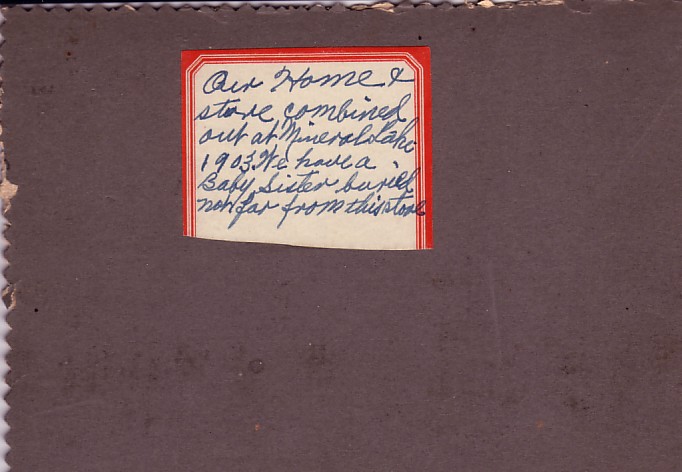 Our Home &
store combined
out at Mineral Lake
1903. We have a
Baby Sister buried
not far from this store